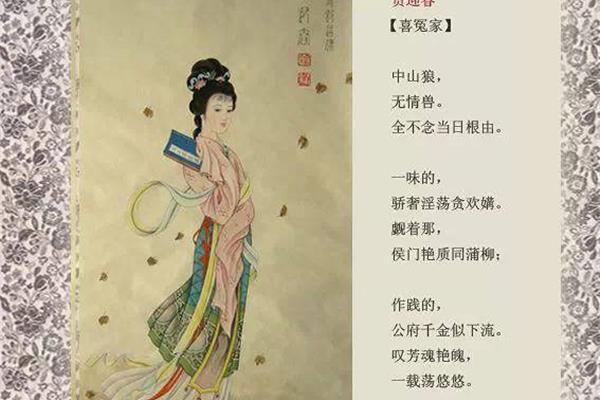 贾迎春
【喜冤家】
中山狼，
无情兽。
全不念当日根由。
一味的，
骄奢淫荡贪欢媾。
觑着那，
侯门艳质同蒲柳；
作践的，
公府千金似下流。
叹芳魂艳魄，
一载荡悠悠。